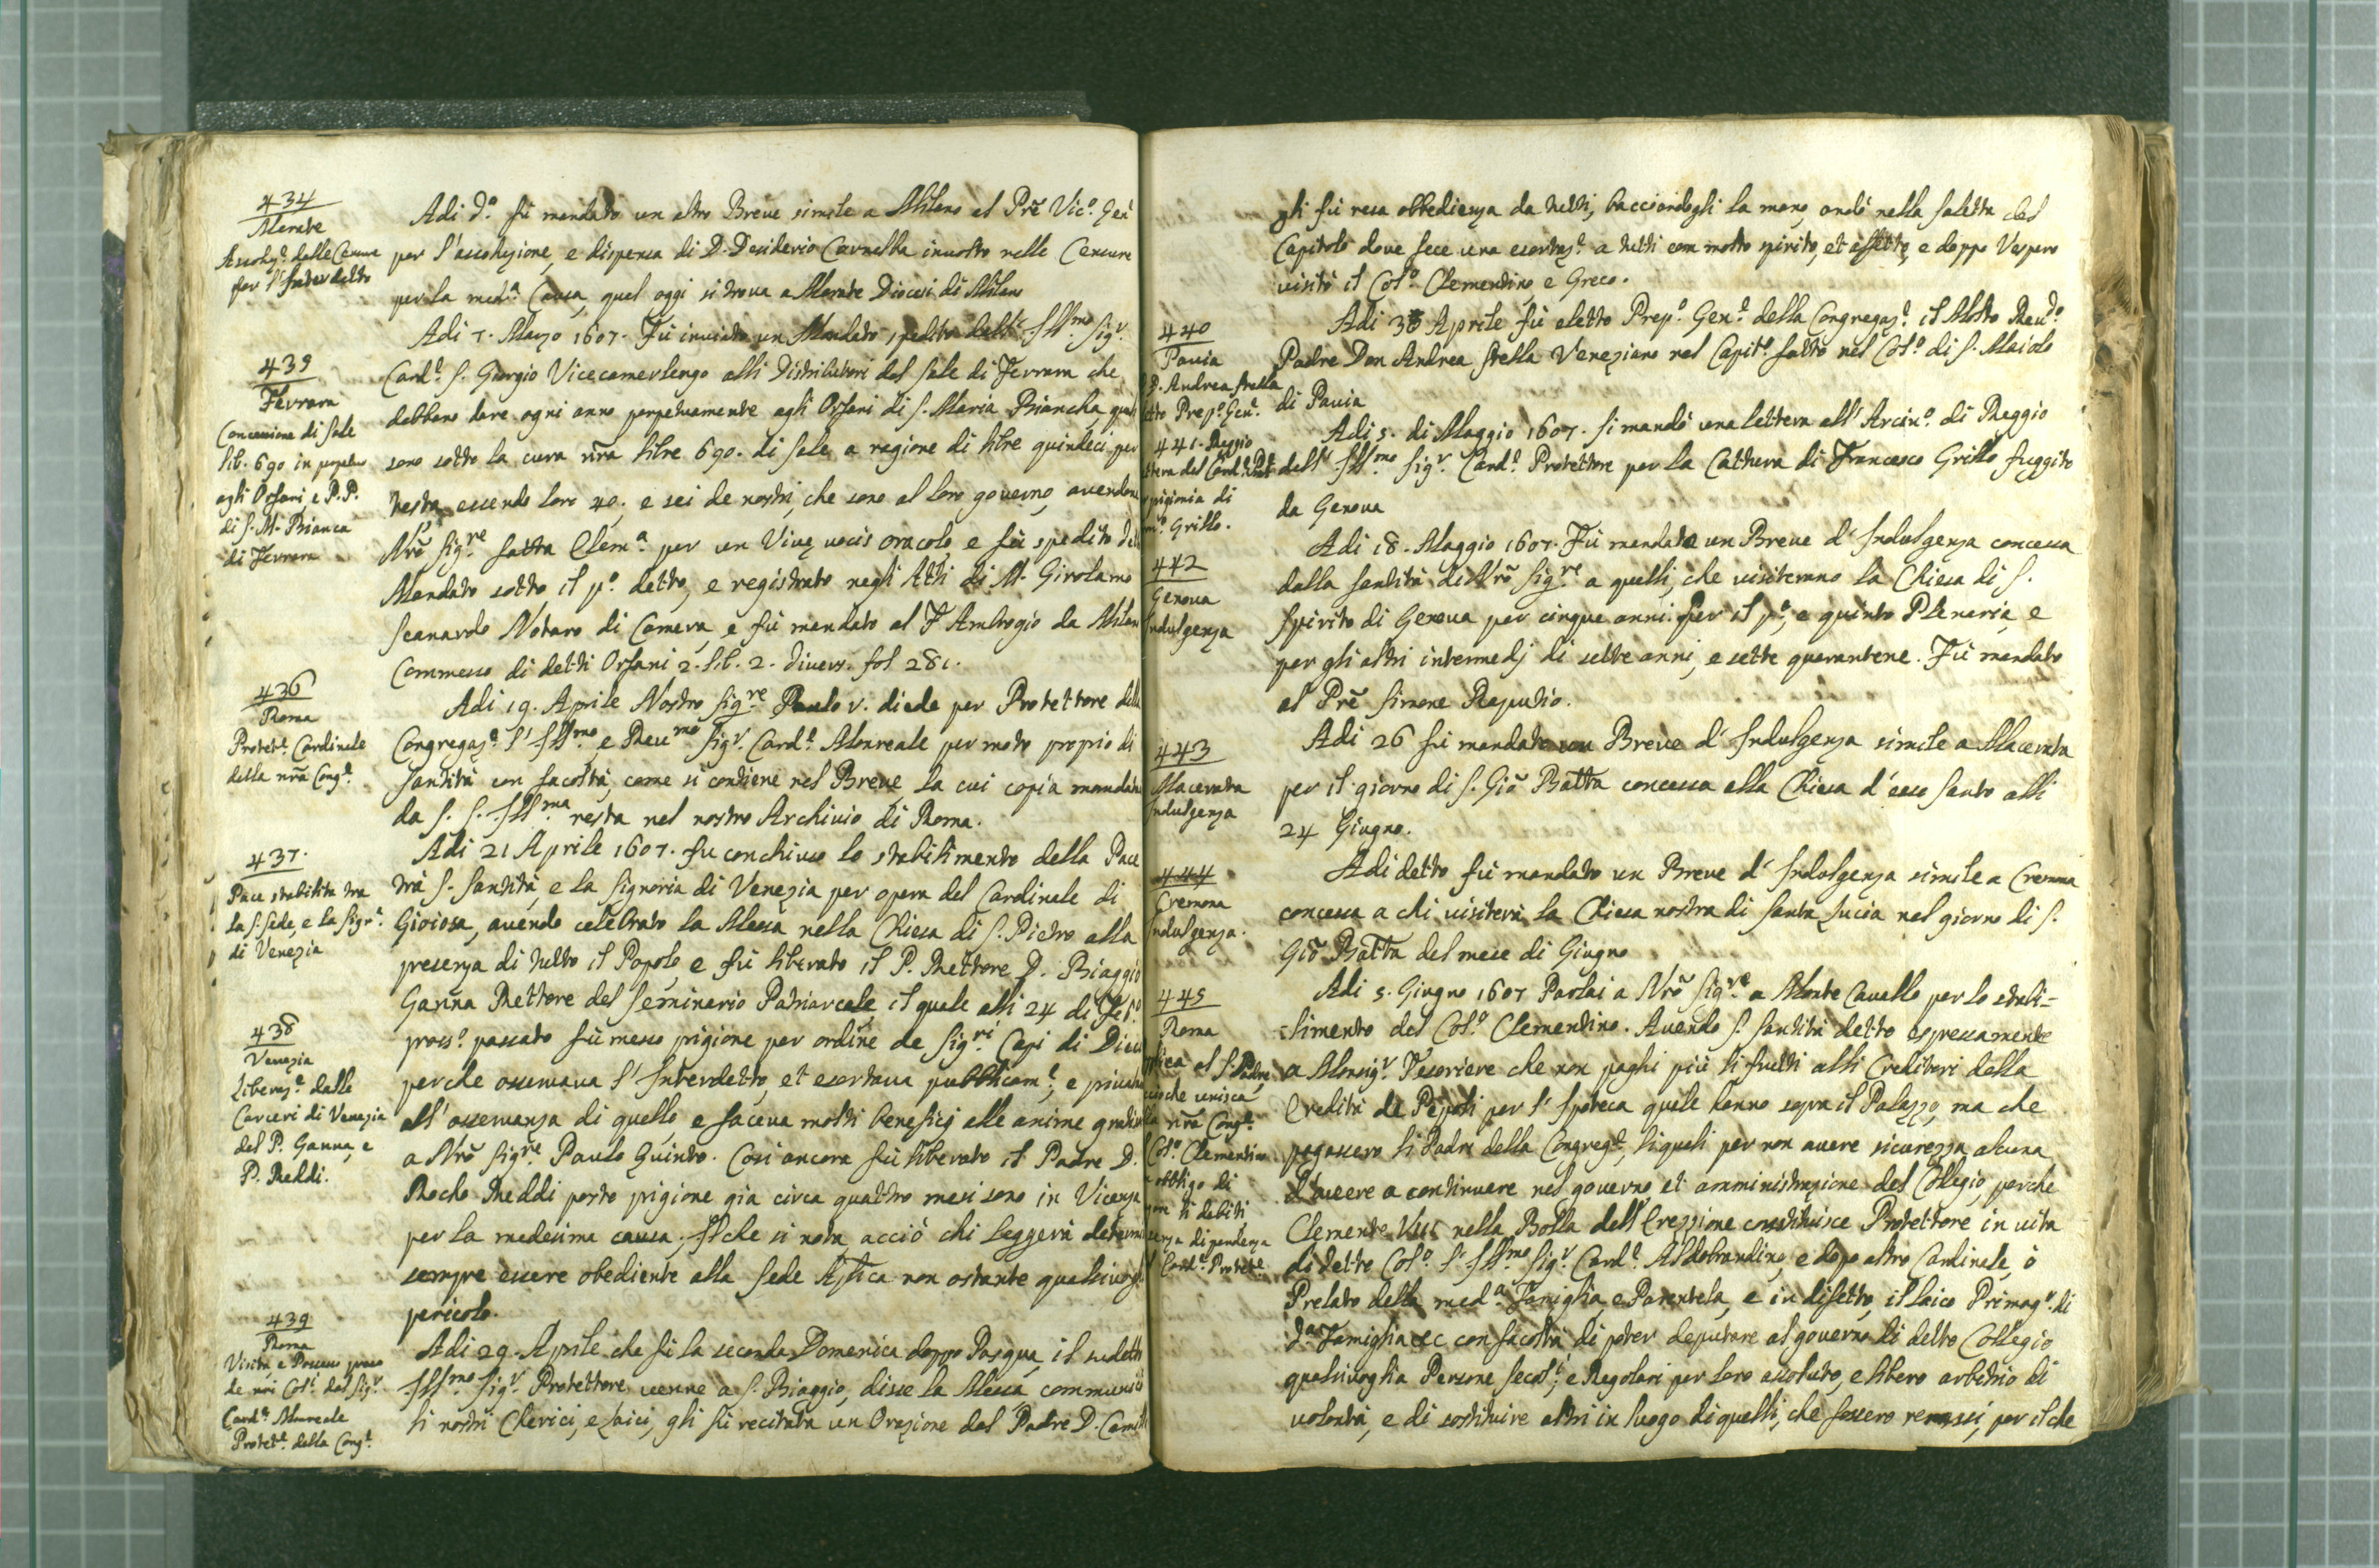 434
Merate
Assoluz.e dalle Censure
per l'Interdetto
Adi d.o fù mandato un altro Breve simile a Milano al Prẽ Vic.o Gen̄
per l'assoluzione, e dispensa di D. Desiderio Cornalba involto nelle Censure
per la med.a Causa, qual oggi si trova a Merate Diocesi di Milano
439
Ferrara
Concessione di sale
lib. 690 in perpetuo
agli Orfani, e P.P.
di S. M. Bianca
di Ferrara
Adi 7. Marzo 1607. Fù inviato un Mandato spedito dall' Ill.mo Sig.r
Card.e S. Giorgio Vicecamerlengo alli Distributori del sale di Ferrara che
debbano dare ogni anno perpetuamente agli Orfani di S. Maria Biancha, quali
sono sotto la cura nr̃a libre 690. di sale a ragione di libre quindeci per
testa, essendo loro 40, e sei de nostri, che sono al loro governo, avendone
Nrõ Sig.re fatta Clem.a per un Vivę vocis oracolo, e fù spedito
Mandato sotto il p.o detto, e registrato negli Atti di M. Girolamo
Scanardo Notaro di Camera, e fù mandato al F. Ambrogio da Milano
Commesso di detti Orfani 2. lib. 2. divers. fol 281.
436
Roma
Protet.e Cardinale
della nr̃a Cong.e
Adi 19. Aprile Nostro Sig.re Paulo v. diede per Protettore della
Congregaz.e l'Ill.mo e Reu.mo Sig.r Card.e Monreale per moto proprio di
Santità con facoltà, come si contiene nel Breve, la cui copia mandata
da S. S. Ill.ma resta nel nostro Archivio di Roma.
437.
Pace stabilita tra
la S. Sede, e la Sigr.a
di Venezia
Adi 21 Aprile 1607. fu conchiuso lo stabilimento della Pace
trà S. Santità, e la Signoria di Venezia per opera del Cardinale di
Gioiosa, avendo celebrato la Messa nella Chiesa di S. Pietro alla
presenza di tutto il Popolo, e fù liberato il P. Rettore D. Biaggio
438
Venezia
Liberaz.e dalle
Carceri di Venezia
del P. Ganna, e
P. Reddi.
Ganna Rettore del Seminario Patriarcale il quale alli 24 di Feb.o
pross.o passato fù messo prigione per ordine de Sig.ri Capi di Dieci
perche osservava l'Interdetto, et esortava pubblicam.e, e privata
all'osservanza di quello, e faceva molti benefici alle anime
a Nrõ Sig.re Paulo Quinto. Così ancora fù liberato il Padre D.
Rocho Reddi posto prigione già circa quattro mesi sono in Vicenza
per la medesima causa; Il che si nota acciò chi leggerà determi
sempre essere obediente alla Sede Aplica non ostante qualsivogl
pericolo.
439
Roma
Visita, e Possesso preso
de nri Coll.i dal Sig.r
Card.e Monreale
Protet.e della Cong.e
Adi 29. Aprile che fù la seconda Domenica doppo Pasqua, il sudetto
Ill.mo Sig.r Protettore venne a S. Biaggio, disse la Messa, communicò
li nostri Chierici, e Laici, gli fù recitata un Orazione dal Padre D.
gli fù resa obbedienza da tutti, bacciandogli la mano, andò nella saletta del
Capitolo dove fece una esortaz.e a tutti con molto spirito, et affetto, e doppo Vespero
visitò il Col.o Clementino, e Greco.
440
Pavia
D. Andrea Stella
Prep.o Gen.e
Adi 30 Aprile fù eletto Prep.o Gen.e della Congregaz.e il Molto Reu.do
Padre Don Andrea Stella Veneziano nel Capit.o fatto nel Col.o di S. Maiolo
di Pavia
441. Reggio
del Card.e Prot.
di
Grillo.
Adi 5. di Maggio 1607. Si mandò una lettera all'Arciu.o di Reggio
dell' Ill.mo Sig.r Card.e Protettore per la Cattura di Francesco Grillo fuggito
da Genova
442
Genova
Indulgenza
Adi 18. Maggio 1607. Fù mandato un Breve d'Indulgenza concessa
dalla Santità di Nrõ Sig.re a quelli, che visiteranno la Chiesa di S.
Spirito di Genova per cinque anni. per il p.o, e quinto Plenaria, e
per gli altri intermedj di sette anni, e sette quarantene. Fù mandato
al Prẽ Simone Reputio.
443
Macerata
Indulgenza
Adi 26 fù mandato un Breve d'Indulgenza simile a Macerata
per il giorno di S. Giõ Batta concessa alla Chiesa d'esso Santo alli
24 Giugno.
444
Cremona
Indulgenza.
Adi detto fù mandato un Breve d'Indulgenza simile a Cremona
concessa a chi visiterà la Chiesa nostra di Santa Lucia nel giorno di S.
Giõ Batta del mese di Giugno
445
Roma
al S. Padre
che unisca
nr̃a Cong.e
Col.o Clementino
obbligo di
li debiti
dipendenza
Card.e Protet.e
Adi 5. Giugno 1607 Parlai a Nrõ Sig.re a Monte Cavallo per lo stabi-
limento del Col.o Clementino. Avendo S. Santità detto espressamente
a Monsig.r Tesoriere che non paghi più li frutti alli Creditori della
Eredità de Pepoli per l'Ipoteca quale hanno sopra il Palazzo, ma che
pagassero li Padri della Congreg.e, li quali per non avere sicurezza alcuna
d'avere a continuare nel governo, et amministrazione del Collegio, perche
Clemente VIII nella Bolla dell'Erezzione constituisce Protettore in vita
di detto Col.o l'Ill.mo Sig.r Card.e Aldobrandino, e dopo altro Cardinale, ò
Prelato della med.a Famiglia, e Parentela, e in difetto, il laico Primog.o di
d.a Famiglia &c con facoltà di poter deputare al governo di detto Collegio
qualsivoglia Persone Secol.i, e Regolari per loro assoluto, e libero arbitrio di
volontà, e di sostituire altri in luogo di quelli, che fossero remossi, per il che